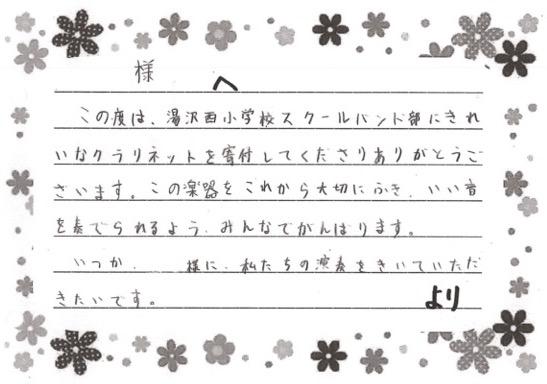 様へ
この度は、湯沢西小学校スクールバンド部にきれ
いなクラリネットを寄付してくださりありがとうご
ざいます。この楽器をこれから大切にふき、いい音
を奏でられるよう、みんなでがんばります。
いつか、　　様に、私たちの演奏をきいていただ
きたいです。　　より